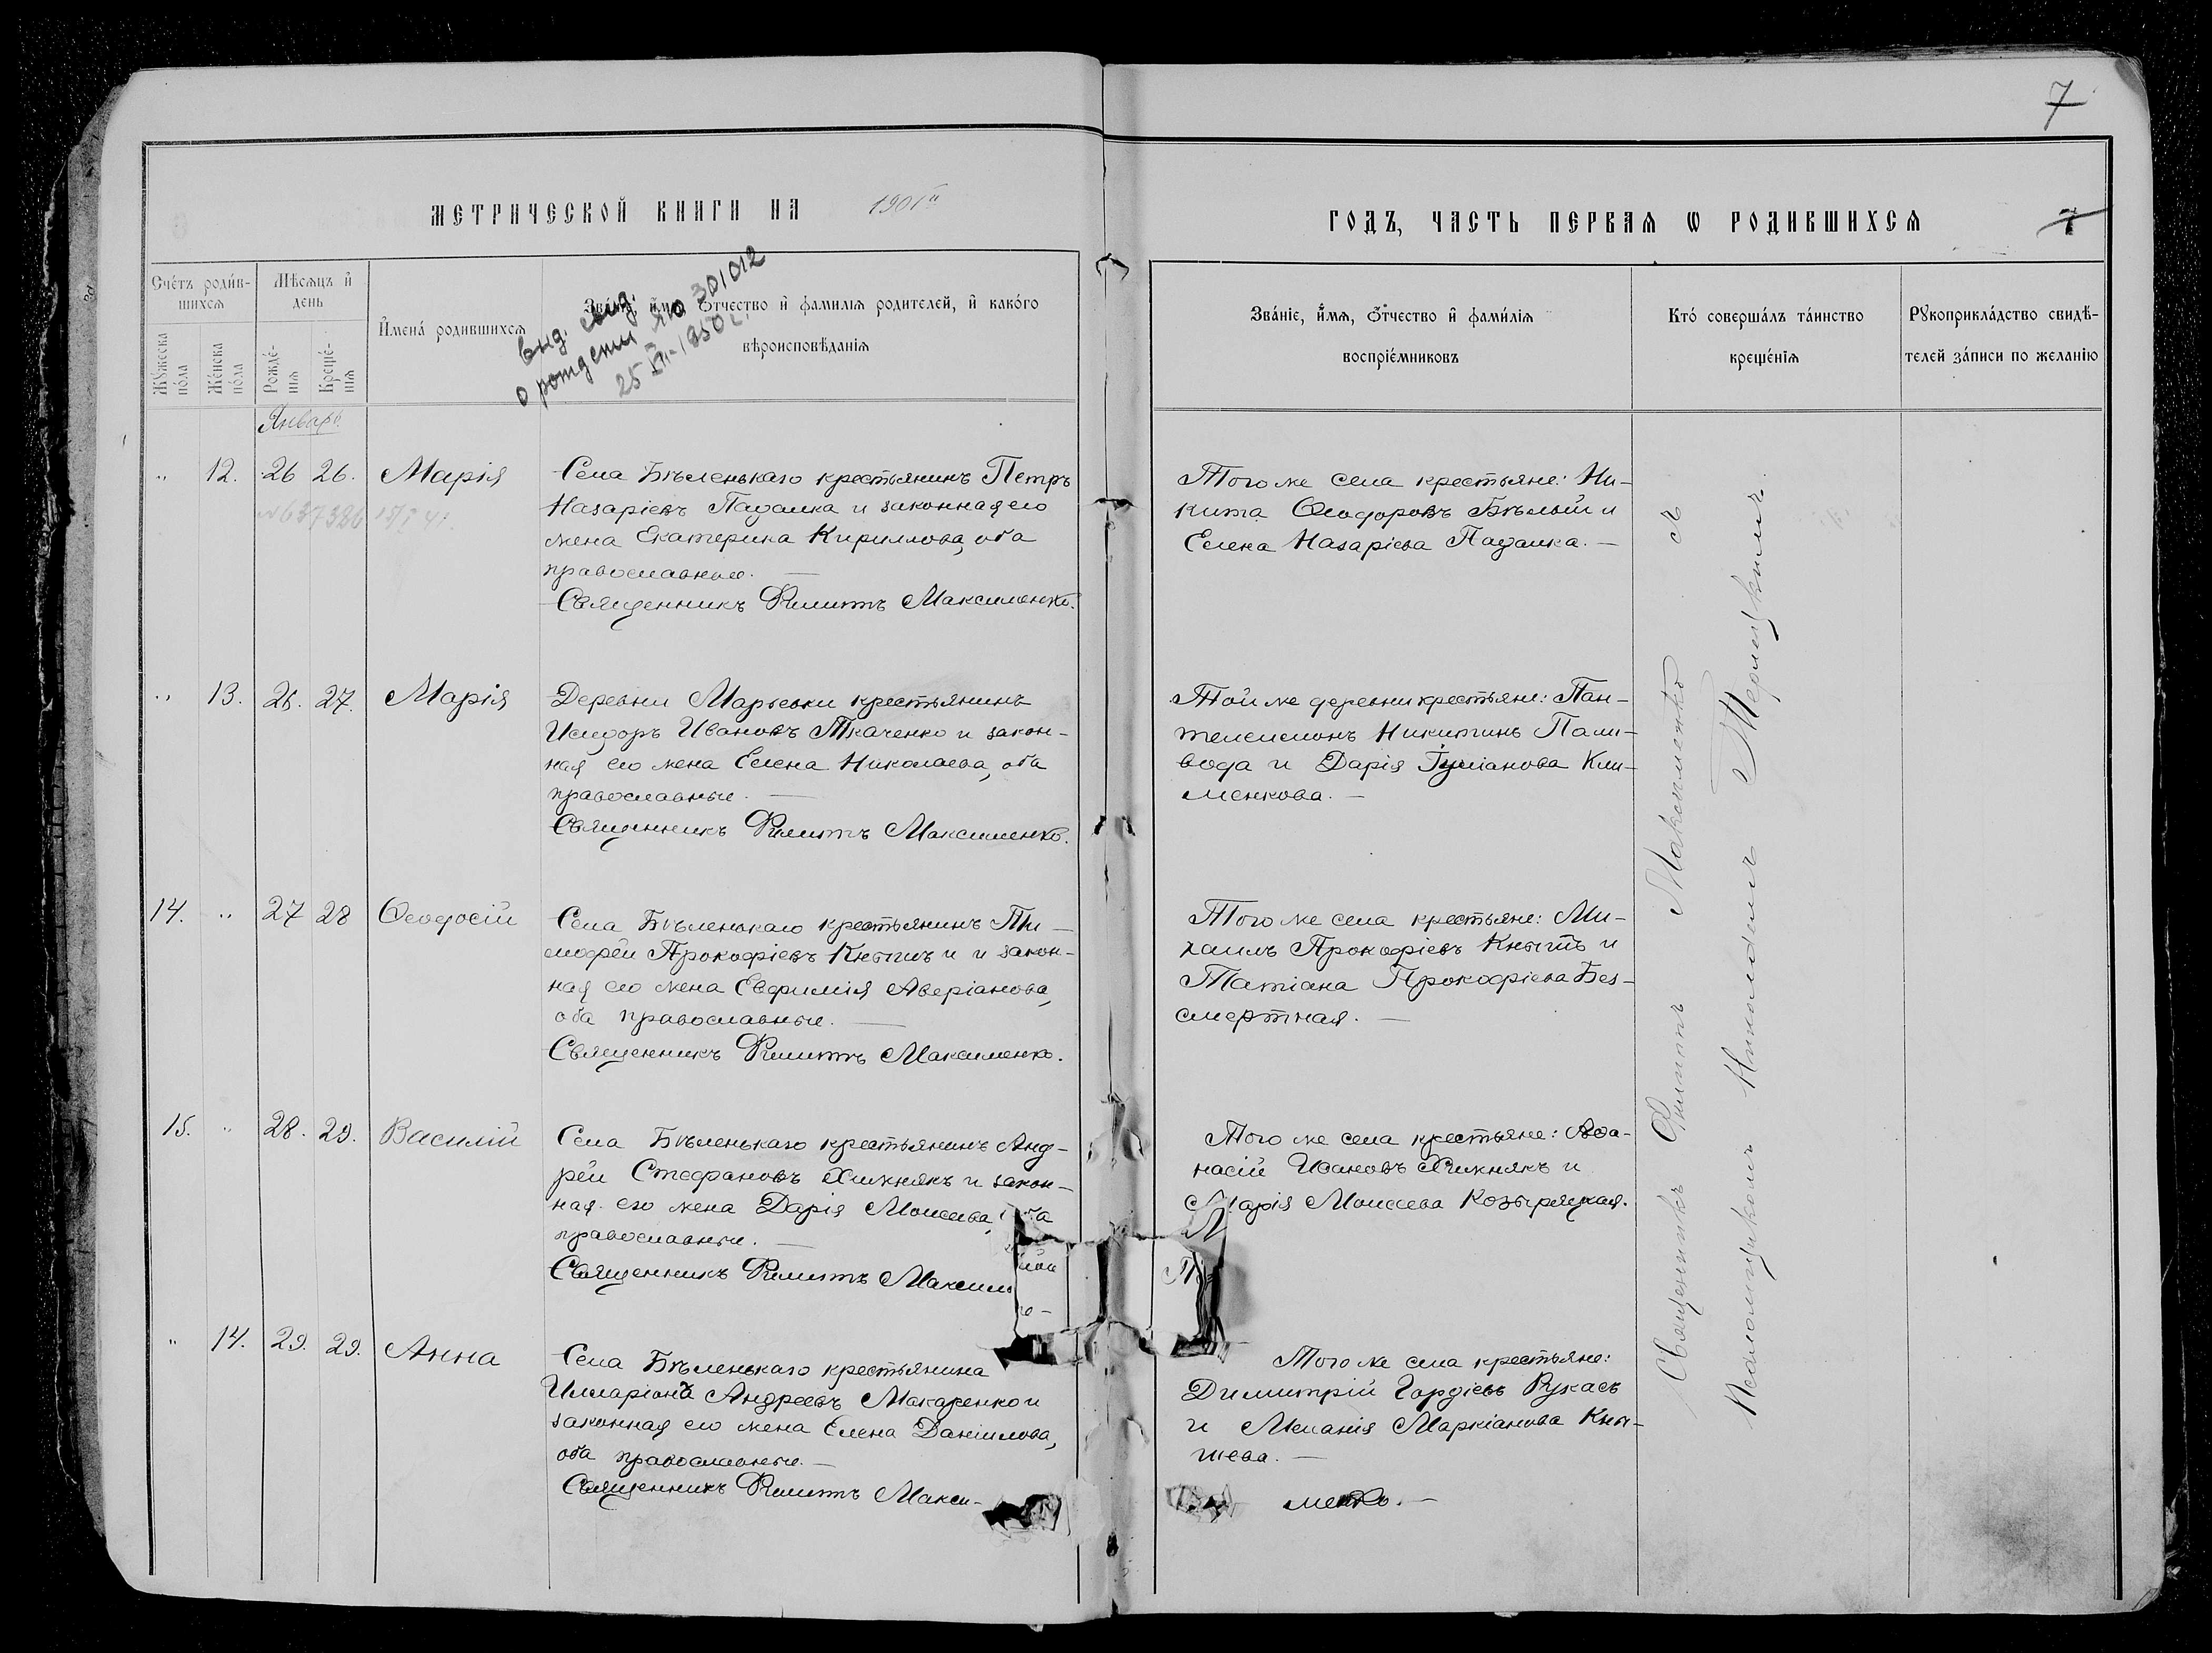 7
МЕТРИЧЕСКОЙ КНИГИ НА 1901й
ГОДЪ, ЧАСТЬ ПЕРВАЯ Ѡ РОДИВШИХСЯ 7
Счетъ родив-
шихся
Мужеска
пола
Женска
пола
Мѣсяцъ и
день
Рожде-
нія
Креще-
нія
Имена родившихся
Званіе, имя, отчество и фамилія родителей, и какого
вѣроисповѣданія
выд. свид.
о рождении № 301012
25 1950 г.
Званіе, имя, отчество и фамилія
воспріемниковъ
Кто совершалъ таинство
крещенія
Рукоприкладство свидѣ-
телей записи по желанію
Январь
„ 12. 26 26. Марія
№ 637386
Села Бѣленькаго крестьянинъ Петръ
Назаріевъ Падалка и законная его
жена Екатерина Кириллова, оба
православные. —
Священникъ Филиппъ Максименко.
Того же села крестьяне: Ни-
кита Ѳеодоровъ Бѣлый и
Елена Назаріева Падалка. —
„ 13. 26. 27. Марія
Деревни Марьевки крестьянинъ
Исидоръ Ивановъ Ткаченко и закон-
ная его жена Елена Николаева, оба
православные. —
Священникъ Филиппъ Максименко.
Той же деревни крестьяне: Пан-
телеимонъ Никитинъ Пали-
вода и Дарія Іуліанова Кли-
менкова. —
14. „ 27 28 Ѳеодосій
Села Бѣленькаго крестьянинъ Ти-
моѳей Прокофіевъ Кнышъ и и закон-
ная его жена Евфимія Аверіанова,
оба православные. —
Священникъ Филиппъ Максименко.
Того же села крестьяне: Ми-
хаилъ Прокофіевъ Кнышъ и
Татіана Прокофіева Без-
смертная. —
15. „ 28. 29. Василій
Села Бѣленькаго крестьянинъ Анд-
рей Стефановъ Хижнякъ и закон-
ная его жена Дарія Моисеева, оба
православные. —
Священникъ Филиппъ Максим
Того же села крестьяне: Аѳа-
насій Ивановъ Хижнякъ и
Марія Моисеева Козырецкая.
„ 14. 29. 29. Анна
Села Бѣленькаго крестьянина
Илларіонъ Андреевъ Макаренко и
законная его жена Елена Даніилова,
оба православные. —
Священникъ Филиппъ Макси-
менко. —
Того же села крестьяне:
Димитрій Гордіевъ Рукасъ
и Меланія Маркіанова Кны-
шева. —
Священникъ Филиппъ Максименко съ
Псаломщикомъ Никодимъ